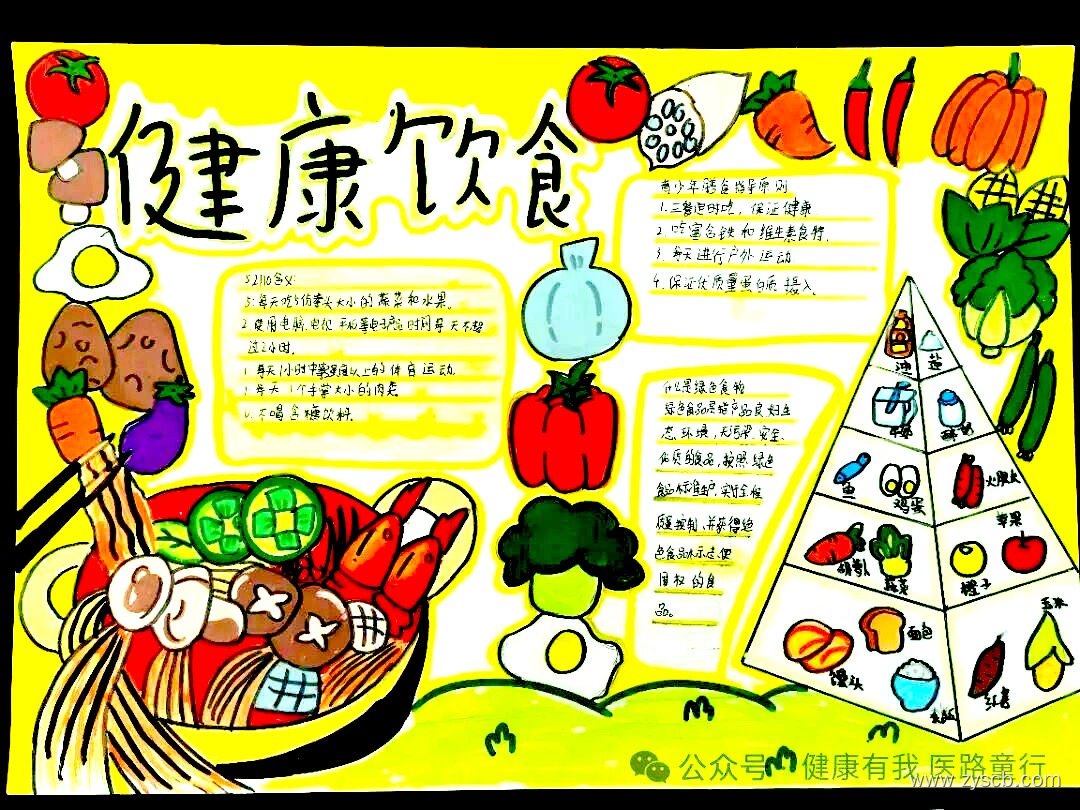 健康饮食
52110含义:
5:每天吃5份拳头大小的蔬菜和水果。
2:使用电脑、电视、平板等电子产品时间每天不超
过2小时。
1:每天1小时中等强度以上的体育运动
1:每天1个手掌大小的肉类
0:不喝含糖饮料.
青少年膳食指导原则
1.三餐定时吃,保证健康
2.吃富含铁和维生素食物.
3.每天进行户外运动
4.保证优质量蛋白质摄入.
什么是绿色食物
绿色食品是指产品良好生
态环境,无污染、安全、
优质的食品,按照绿色
食品标准生产,实行全程
质量控制、并获得绝
色食品标志使
用权的食
品。
油
盐
牛奶
酸奶
鱼
鸡蛋
火腿肠
胡萝卜
蔬菜
苹果
橙子
面包
馒头
米饭
玉米
红薯
公众号
健康有我 医路童行
www.zyscb.com